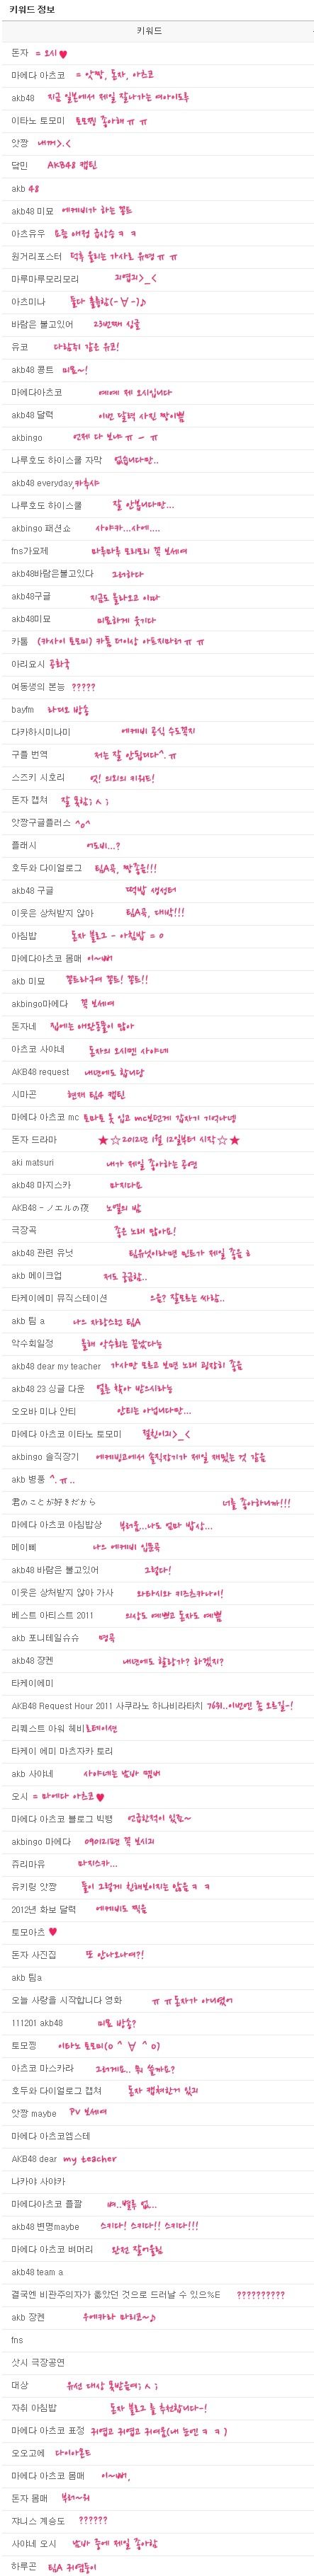 키워드 정보
키워드
돈자 = 오시♥
마에다 아츠코 = 앗짱, 돈자, 아츠코
akb48 지금 일본에서 제일 잘나가는 여아이도루
이타노 토모미 토모찡 좋아해 ㅠ ㅠ
앗짱 내꺼>.<
닼민 AKB48 캡틴
akb 48
akb48 미묘 에케비가 하는 꽁트
아츠유우 요즘 애정 급상승 ㅋ ㅋ
원거리포스터 덕후 울리는 가사로 유명 ㅠ ㅠ
마루마루모리모리 귀엽긔>_<
아츠미나 둘다 훌륭함(-∀-)♪
바람은 불고있어 23번째 싱글
유코 다람쥐 같은 유코!
akb48 콩트 미묘~!
마에다아츠코 예예 제 오시입니다
akb48 달력 이번 달력 사진 짱이쁨
akbingo 언제 다 보냐 ㅠ - ㅠ
나루호도 하이스쿨 자막 없습니다만..
akb48 everyday,카츄샤
나루호도 하이스쿨 잘 안봅니다만...
akbingo 패션쇼 사야카...사에....
fns가요제 마루마루 모리모리 꼭 보세여
akb48바람은불고있다 그러하다
akb48구글 지금도 올라오고 이따
akb48미묘 미묘하게 웃기다
카톰 (카사이 토모미) 카톰 더이상 아프지마러 ㅠ ㅠ
아리요시 공화국
여동생의 본능 ?????
bayfm 라디오 방송
다카하시미나미 에케비 공식 수도꼭지
구플 번역 저는 잘 안됩니다^.ㅠ
스즈키 시호리 엇! 의외의 키워드!
돈자 캡쳐 잘 못함;ㅅ;
앗짱구글플러스 ^o^
플래시 어도비...?
호두와 다이얼로그 팀A곡, 짱좋음!!!
akb48 구글 떡밥 생성터
이웃은 상처받지 않아 팀A곡, 대박!!!
아침밥 돈자 블로그 - 아침밥 = 0
마에다아츠코 몸매 이~뻐
akb 미묘 꽁트라구여 꽁트! 꽁트!!
akbingo마에다 꼭 보세여
돈자네 집에는 애완동물이 많아
아츠코 사야네 돈자의 오시멘 사야네
AKB48 request 내년에도 합니당
시마곤 현재 팀4 캡틴
마에다 아츠코 mc 토마토 옷 입고 mc보던게 갑자기 기억나넹
돈자 드라마 ★☆2012년 1월 12일부터 시작☆★
aki matsuri 내가 제일 좋아하는 공연
akb48 마지스카 마지다요
AKB48 - ノエルの夜 노엘의 밤
극장곡 좋은 노래 많아요!
akb48 관련 유닛 팀유닛이라면 민트가 제일 좋음ㅎ
akb 메이크업 저도 궁금함..
타케이에미 뮤직스테이션 으음? 잘모르는 싸람..
akb 팀 a 나으 자랑스런 팀A
악수회일정 올해 악수회는 끝났다능
akb48 dear my teacher 가사만 모르고 보면 노래 굉장히 좋음
akb48 23 싱글 다운 얼른 찾아 받으시라능
오오바 미나 안티 안티는 아닙니다만...
마에다 아츠코 이타노 토모미 절친이긔>_<
akbingo 솔직장기 에케빙고에서 솔직장기가 제일 재밌는 것 같음
akb 병풍 ^.ㅠ..
君のことが好きだから 너를 좋아하니까!!!
마에다 아츠코 아침밥상 부러움...나도 엄마 밥상...
메이삐 나으 에케비 입문곡
akb48 바람은 불고있어 그렇다!
이웃은 상처받지 않아 가사 와타시와 키즈츠카나이!
베스트 아티스트 2011 의상도 예쁘고 돈자도 예쁨
akb 포니테일슈슈 명곡
akb48 장켄 내년에도 할랑가? 하겠지?
타케이에미
AKB48 Request Hour 2011 사쿠라노 하나비라타치 76위..이번엔 좀 오르길-!
리퀘스트 아워 헤비로테이션
타케이 에미 마츠자카 토리
akb 사야네 사야네는 남바 멤버
오시 = 마에다 아츠코♥
마에다 아츠코 블로그 빅뱅 언급한적이 있죠~
akbingo 마에다 090121편 꼭 보시긔
쥬리마유 마지스카...
유키링 앗짱 둘이 그렇게 친해보이지는 않음 ㅋ ㅋ
2012년 화보 달력 에케비도 찍음
토모아츠 ♥
돈자 사진집 또 안나오나여?!
akb 팀a
오늘 사랑을 시작합니다 영화 ㅠ ㅠ돈자가 아니였어
111201 akb48 미묘 방송?
토모찡 이타노 토모미(o ^ ∀ ^ o)
아츠코 마스카라 그러게요.. 뭐 쓸까요?
호두와 다이얼로그 캡쳐 돈자 캡쳐한거 있긔
앗짱 maybe PV 보세여
마에다 아츠코엡스테
AKB48 dear my teacher
나카야 사야카
마에다아츠코 플짤 벼..별루 없...
akb48 변명maybe 스키다! 스키다!! 스키다!!!
마에다 아츠코 뱌머리 완전 잘어울림
akb48 team a
결국엔 비관주의자가 옳았던 것으로 드러날 수 있으%E ??????????
akb 장켄 우에카라 마리코~♪
fns
샷시 극장공연
대상 유선 대상 못받음여;ㅅ;
자취 아침밥 돈자 블로그 를 추천합니다-!
마에다 아츠코 표정 귀엽고 귀엽고 귀여움(내 눈엔 ㅋ ㅋ )
오오고에 다이아몬드
마에다 아츠코 몸매 이~뻐,
돈자 몸매 부러~워
쟈니스 계승도 ??????
사야네 오시 남바 중에 제일 좋아함
하루곤 팀A 귀염둥이